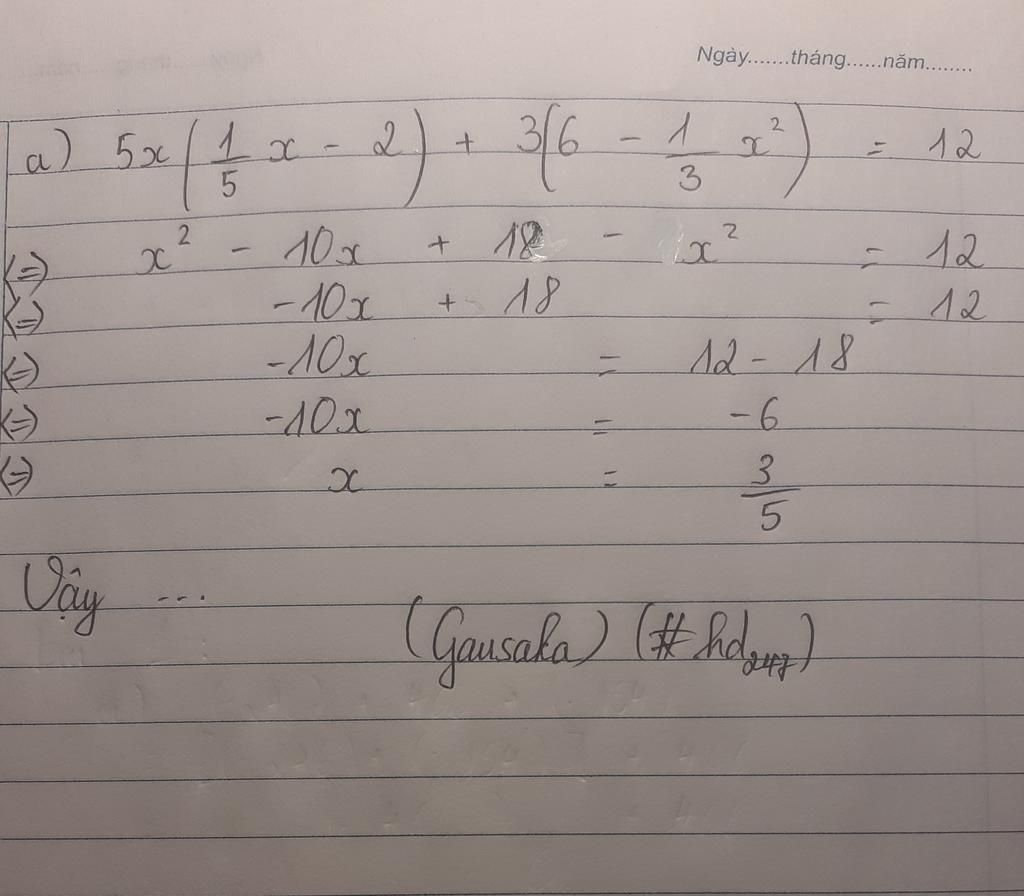 Ngày.......tháng......năm........
a) 5x(1/5 x - 2) + 3(6 - 1/3 x²) = 12
(=) x² - 10x + 18 - x² = 12
(=) -10x + 18 = 12
(=) -10x = 12 - 18
(=) -10x = -6
(=) x = 3/5
Vậy ...
(Gausaka) (#hd247)